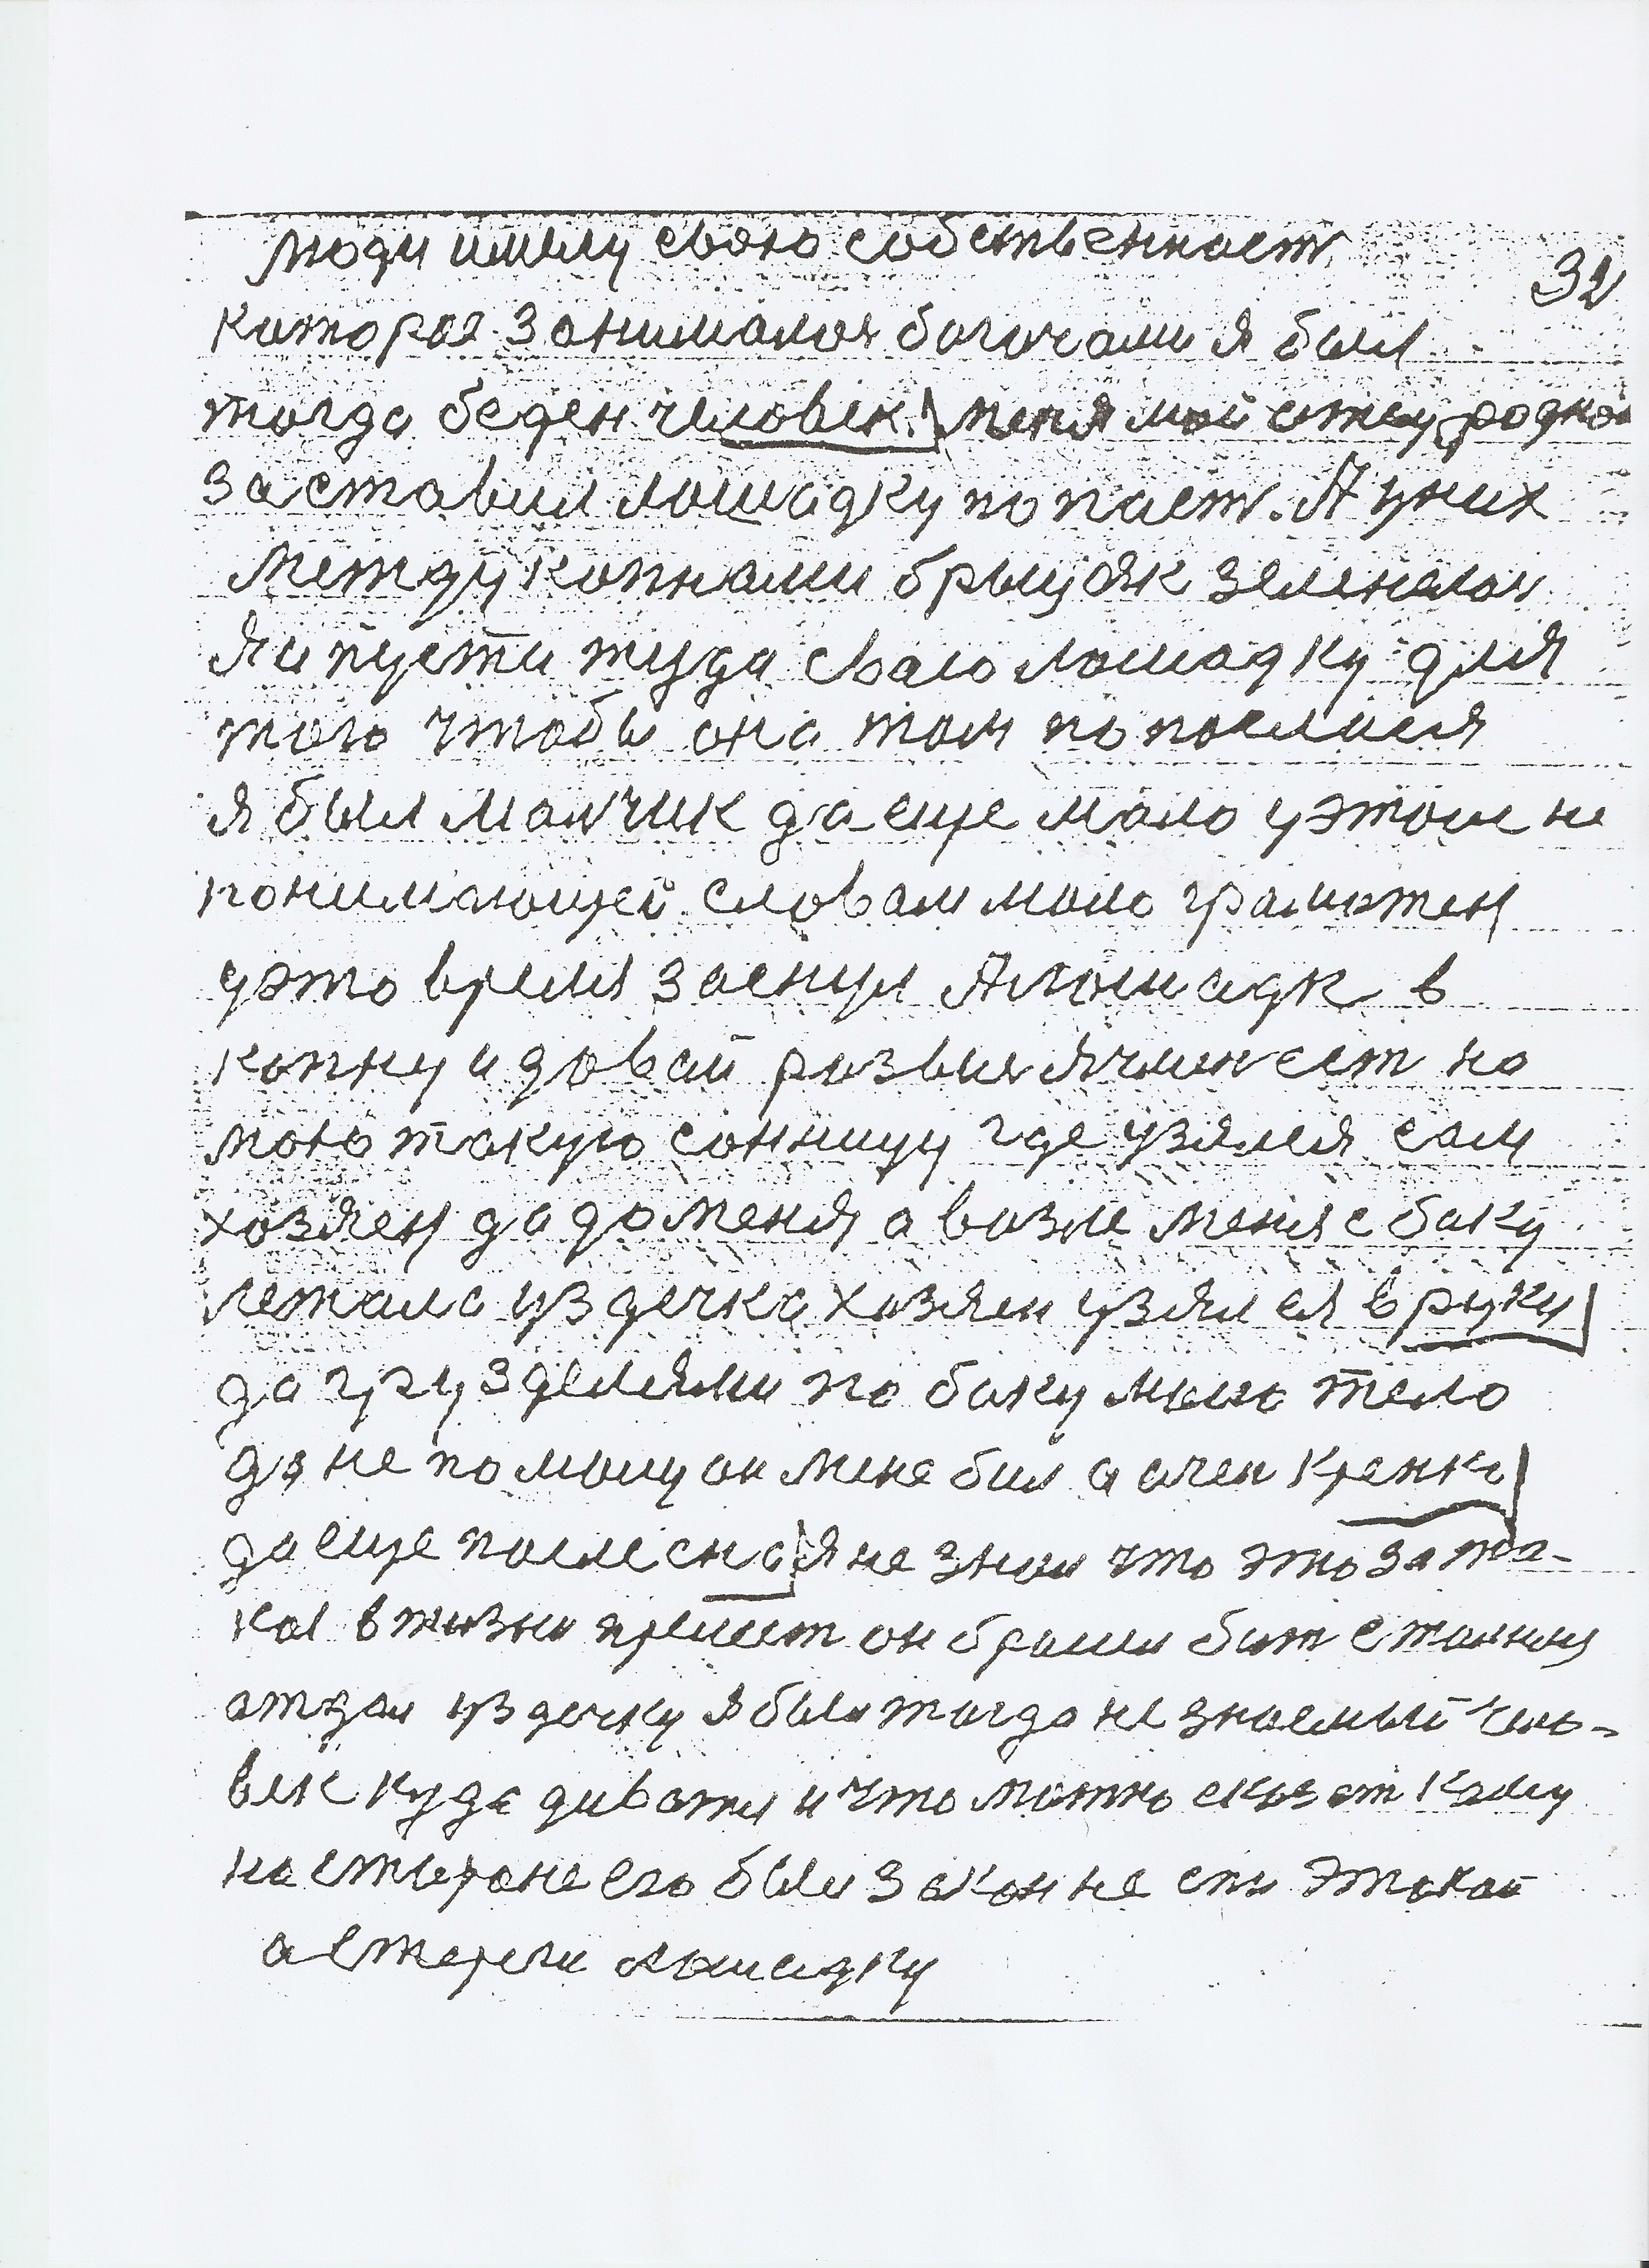 люди имели свою собственност
32
которая занималоя богочами я был
тогда беден человек. меня мой отец родной
заставил лошадку попаст. А у них
между копнами брыцяк зеленелоя
Я и пусти туда сваю лошадку для
того чтобы она там попоелася
я был малчик да еще мало у этом не
понимающей словам мало грамотен
у это время заснул А лошадк в
копну и довай розвия ячмен ест на
мою такую сонницу где узялся сам
хозяен да до меня а возле меня с боку
лежала уздечка хозяен узял ея в руку
да и ну уздечками по боку мыю тело
да не помощу он мене бил а очен крепко
да еще после сна я не знаю что это за та-
кая в жизни прелест он бросил бит стонный
отдал уздечку я был тогда не знаемый чело-
век куда диватся и что можно сказат каму
на стороне его был закон не спи этокой
а стереги лошадку